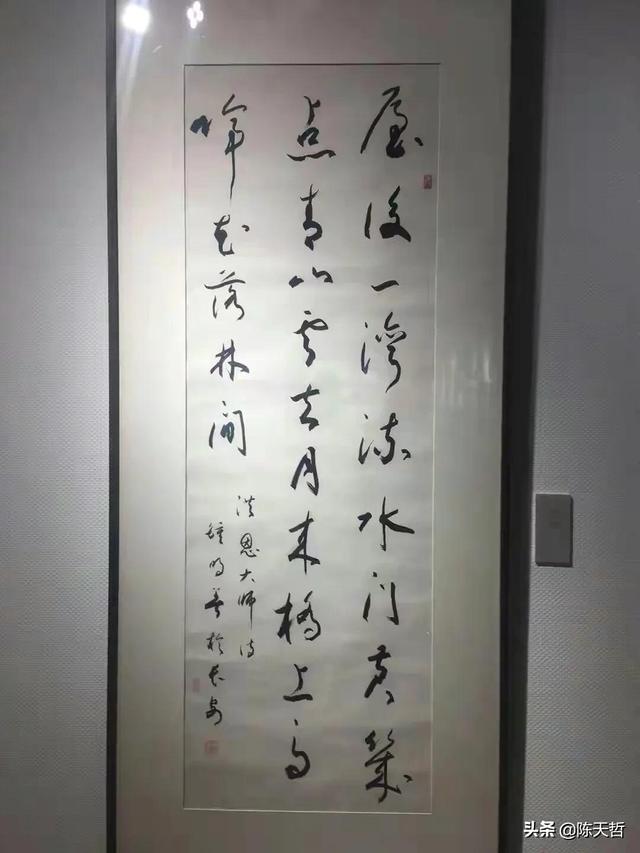 屋後一灣流水門前幾
点青山雲去月來橋上鳥
啼花落林間
洪恩大師詩
鍾明善於長安
头条 @陈天哲